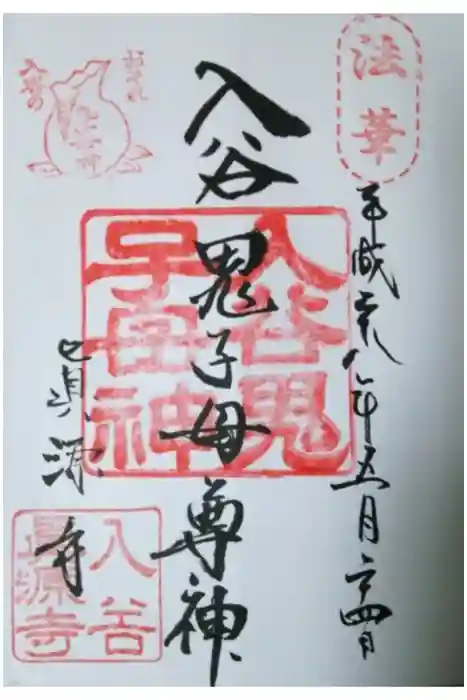 法華
平成二十八年五月二十四日
入谷鬼子母尊神
入谷鬼
子母神
真源寺
入谷